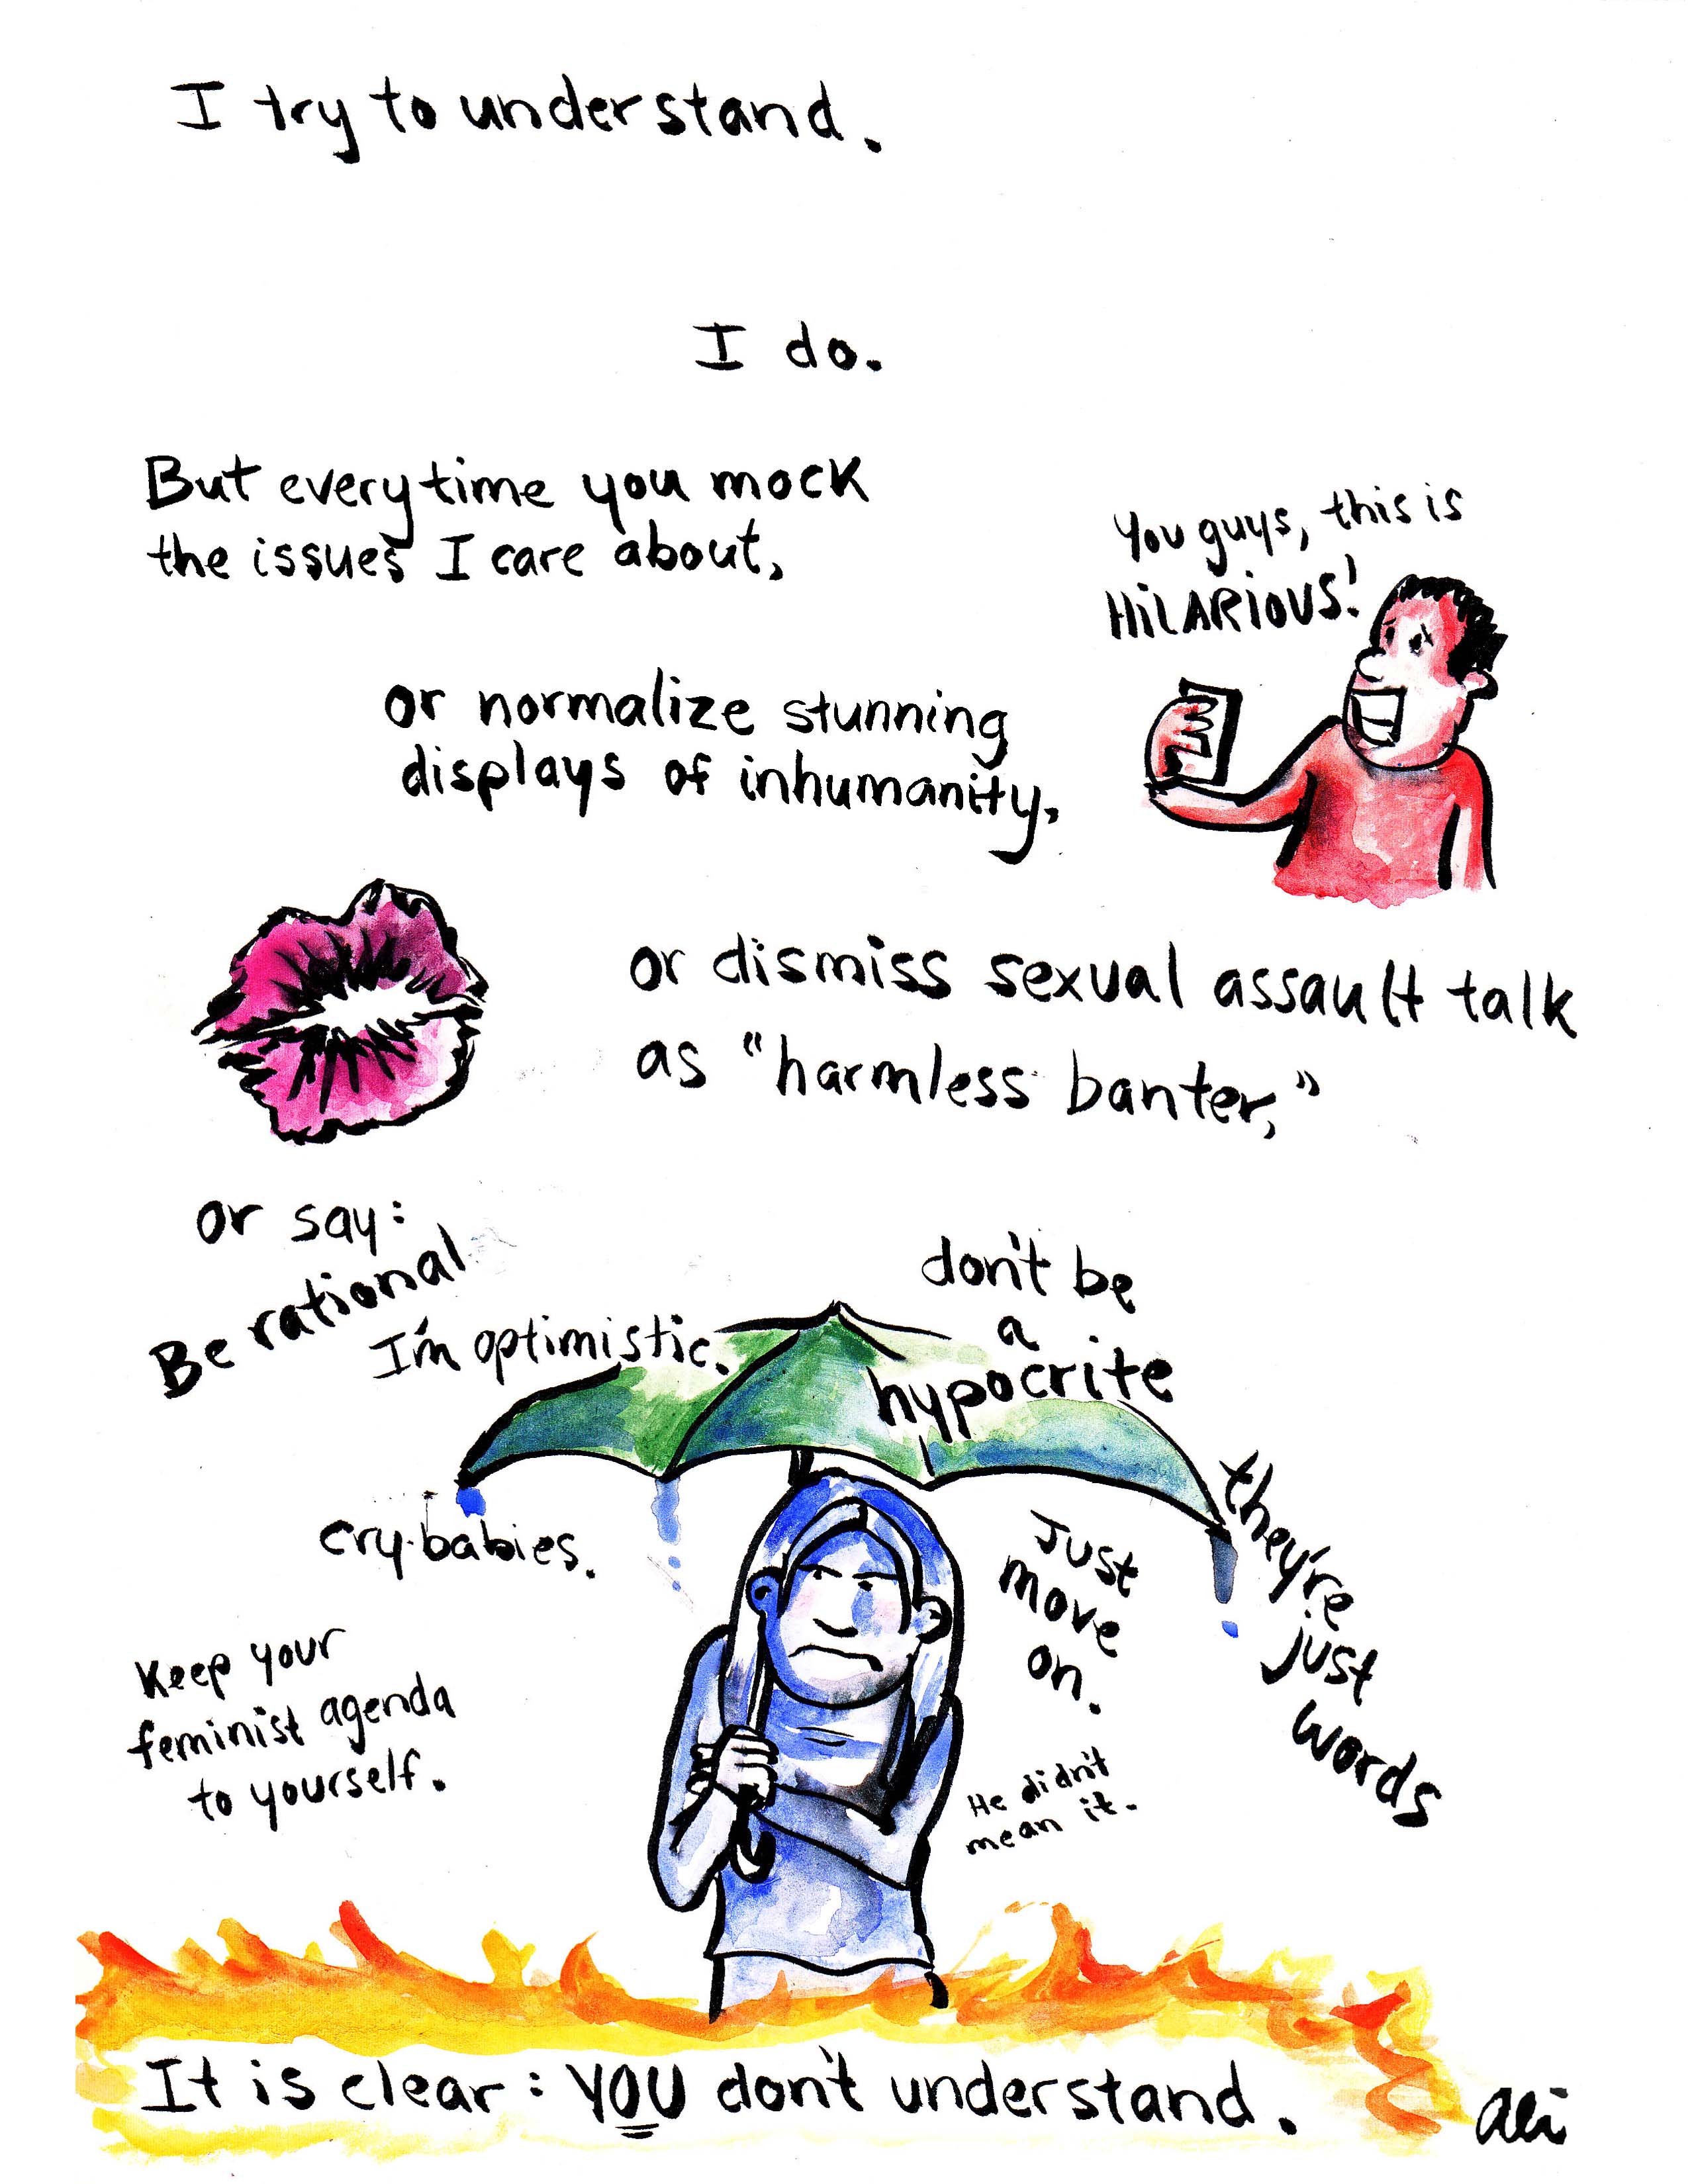 I try to understand.
I do.
But everytime you mock
the issues I care about,
You guys, this is
HiLARiOUS!
or normalize stunning
displays of inhumanity,
or dismiss sexual assault talk
as "harmless banter,"
or say:
Be rational
I'm optimistic.
don't be
a
hypocrite
they're
just
words
cry-babies.
Just
move
on.
Keep your
feminist agenda
to yourself.
He didn't
mean it.
It is clear: YOU don't understand.
Ali